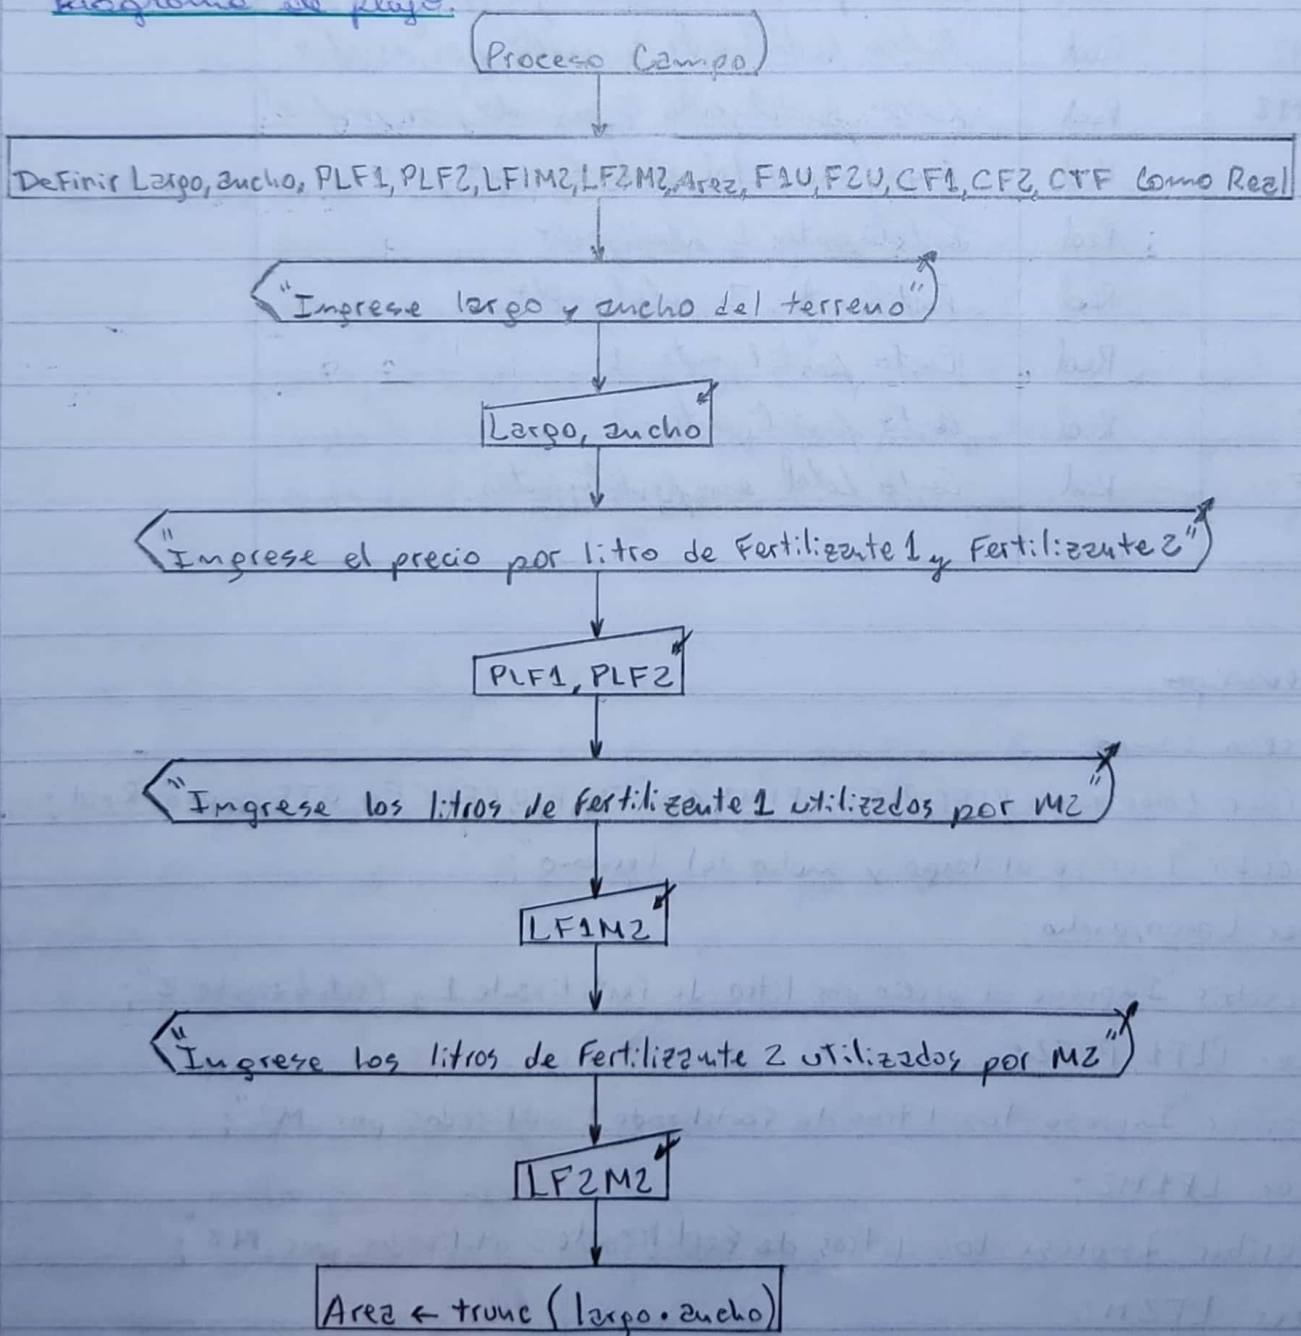 Diagrama de flujo.
Proceso Campo
Definir Largo, ancho, PLF1, PLF2, LF1M2, LF2M2, Area, F1U, F2U, CF1, CF2, CTF Como Real
"Ingrese largo y ancho del terreno"
Largo, ancho
"Ingrese el precio por litro de Fertilizante 1 y Fertilizante 2"
PLF1, PLF2
"Ingrese los litros de Fertilizante 1 utilizados por M2"
LF1M2
"Ingrese los litros de Fertilizante 2 utilizados por M2"
LF2M2
Area ← trunc (largo • ancho)